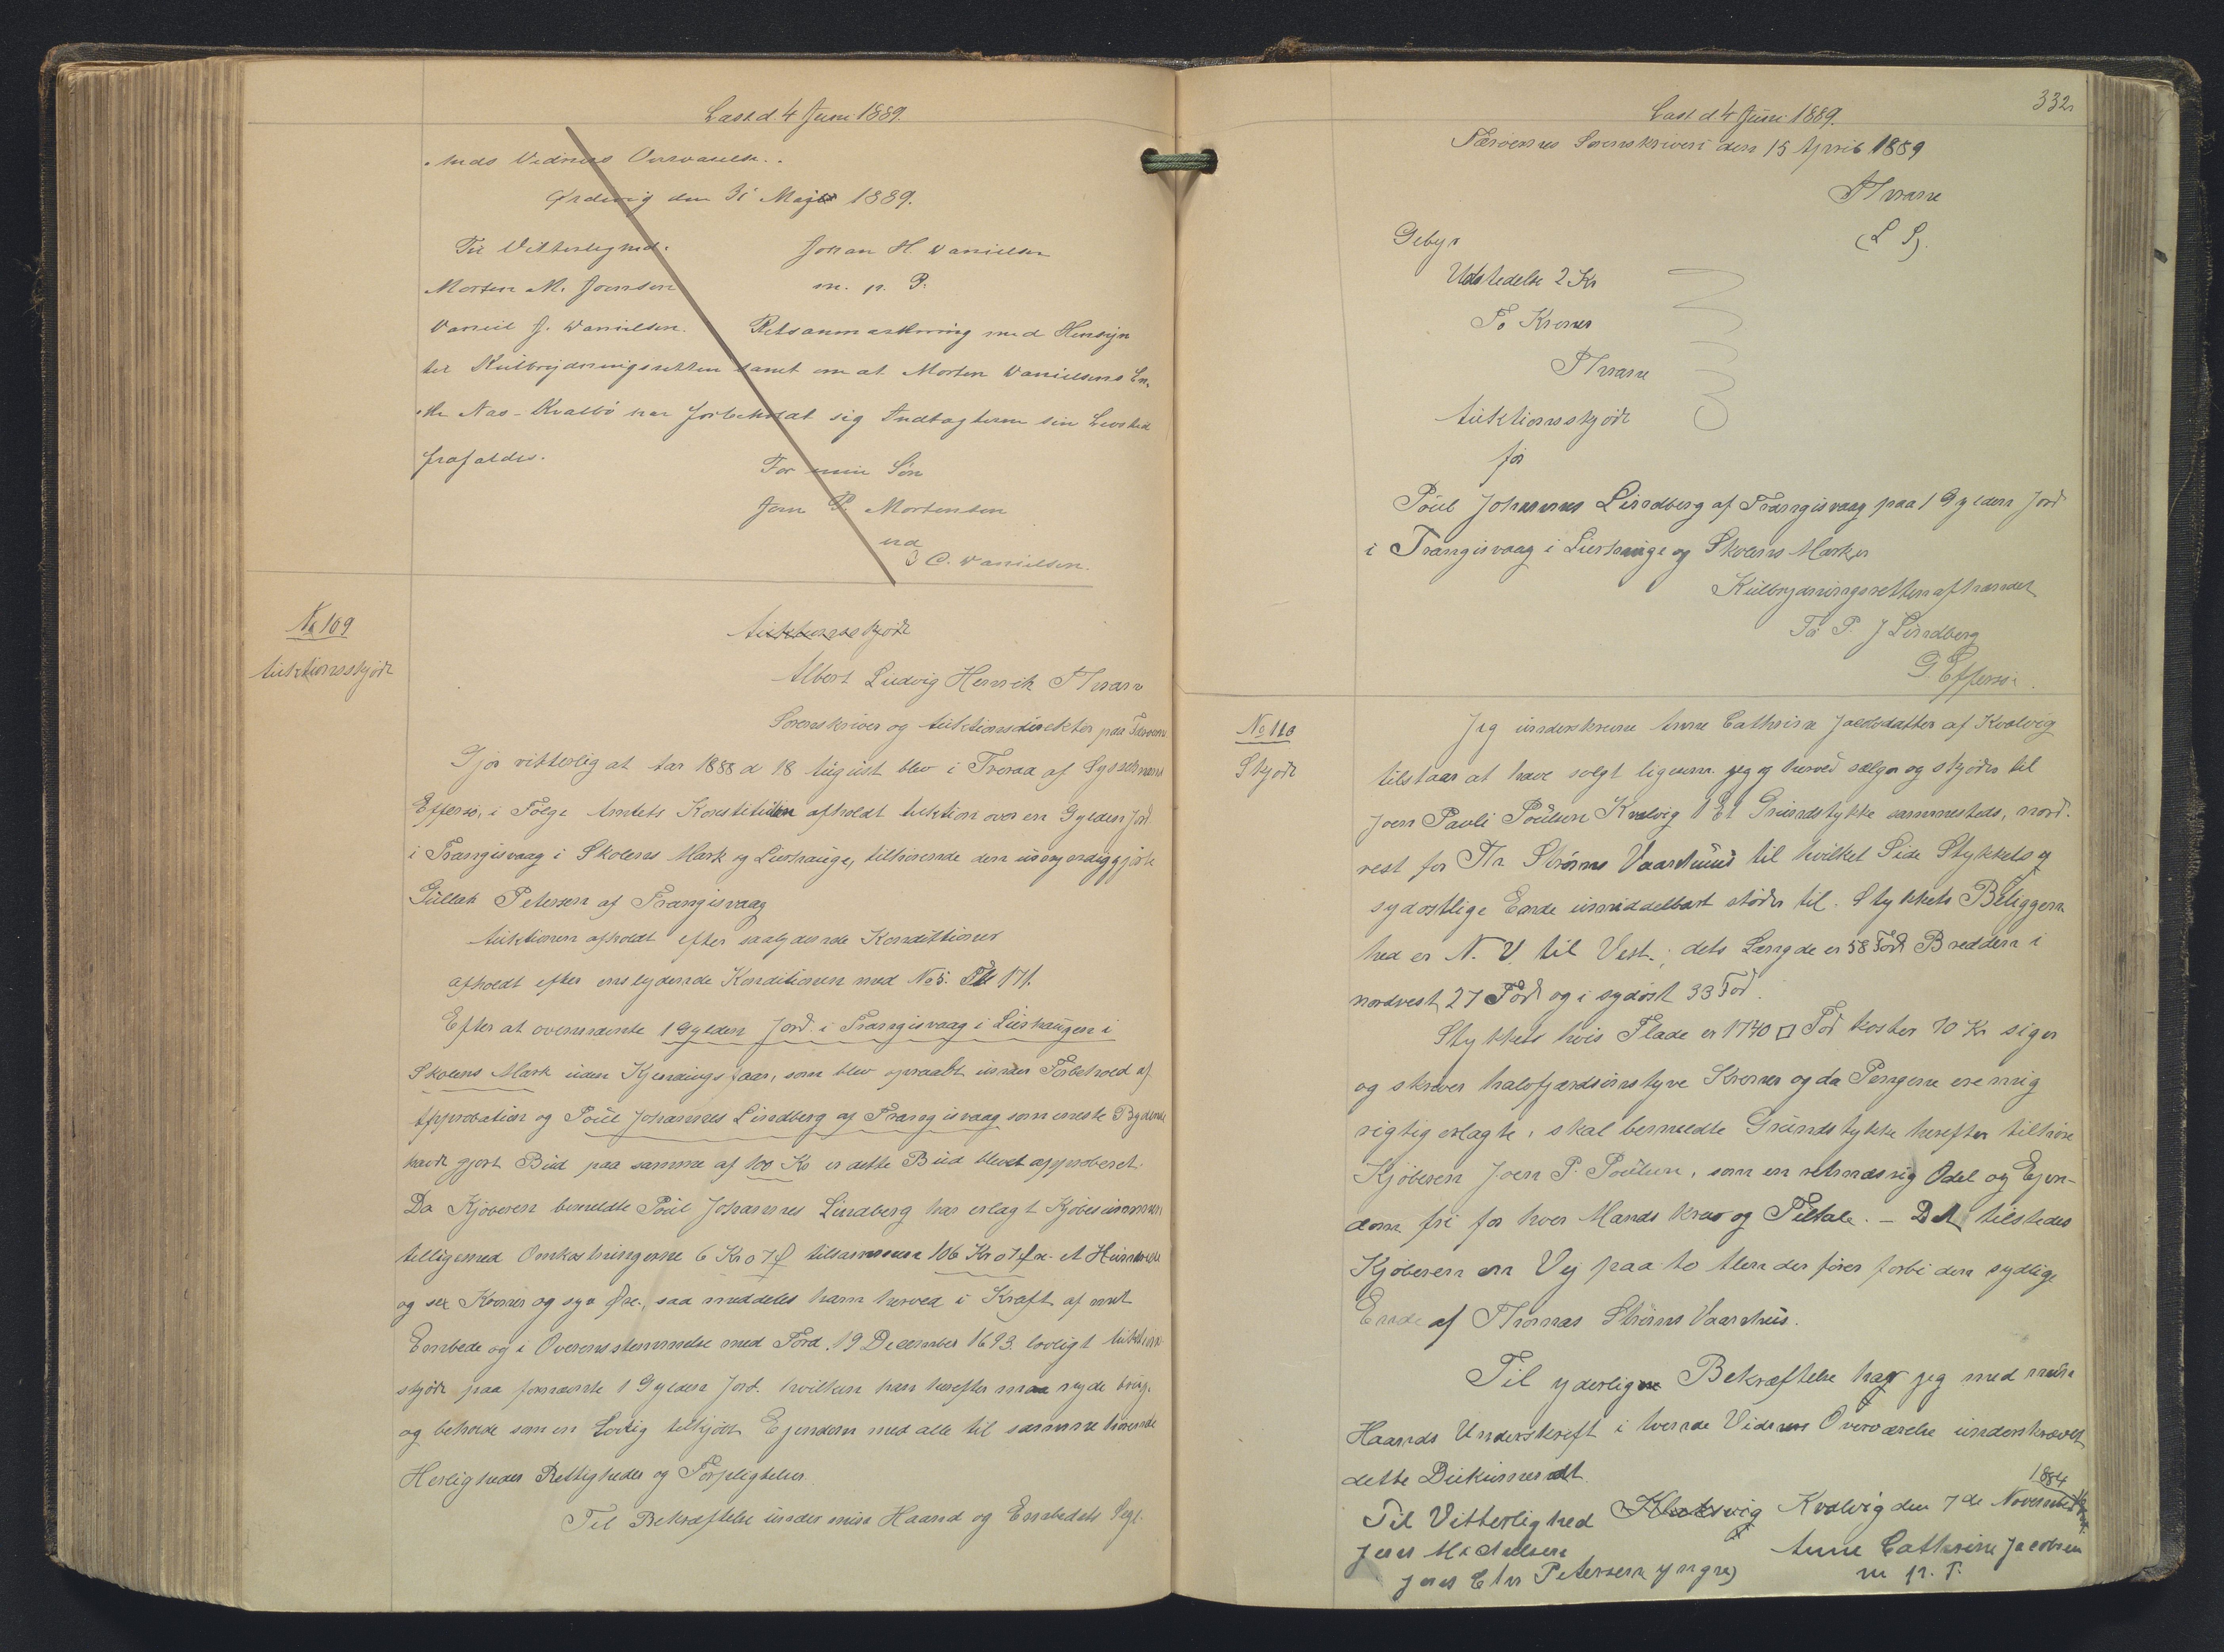 Læst d. 4 Juni 1889.
Mds Vidners Overværelse.
Ørdevig den 31 Maj 1889.
Til Vitterlighed. Johan H. Danielsen
Morten M. Joensen m. p. P.
Daniel J. Danielsen. Retsanmærkning med Hensyn
til Kulbrydningsretten samt om at Morten Danielsens En-
ke Nas-Kvalbø har forbeholdt sig Indtægterne sin Levetid
frafaldes.
For min Søn
Joen P. Mortensen
ved
J C. Danielsen.
No 109
Auktionsskjøde
Auktionsskjøde
Albert Ludvig Henrik Thrane
Sorenskriver og Auktionsdirektør paa Færøerne
Gjør vitterlig at Aar 1888 d 18 August blev i Tveraa af Sysselmand
Effersø, i Følge Amtets Konstitution afholdt Auktion over en Gylden Jord
i Trangisvaag i Skolens Mark og Lierhauge, tilhørende den umyndiggjorte
Gullak Petersen af Trangisvaag
Auktionen afholdt efter saalydende Konditioner
afholdt efter enslydende Konditioner med No 5. Fol 171.
Efter at ovennævnte 1 Gylden Jord i Trangisvaag i Lierhaugen i
Skolens Mark uden Kjendingsfaar, som blev opraabt under Forbehold af
Approbation og Poul Johannes Lindberg af Trangisvaag som eneste Bydende
havde gjort Bud paa samme af 100 Kr er dette Bud blevet approberet.
Da Kjøberen bemeldte Poul Johannes Lindberg har erlagt Kjøbesummen
tilligemed Omkostningerne 6 Kr 07 Ø tilsammen 106 Kr 07 Øre et Hundrede
og sex Kroner og syv Øre, saa meddeles ham herved i Kraft af mit
Embede og i Overensstemmelse med Ford. 19 December 1693. lovligt Auktions
skjøde paa fornævnte 1 Gylden Jord. hvilken han herefter maa nyde brug.
og beholde som en Lovlig tilkjøbt Ejendom med alle til samme hørende
Herligheder Rettigheder og Forpligtelser.
Til Bekræftelse under min Haand og Embedets Segl.
332
Læst d 4 Juni 1889.
Færøernes Sorenskriveri den 15 April 1889
Thrane
(L S).
Gebyr
Udstedelse 2 Kr
To Kroner
Thrane
Auktionsskjøde
for
Poul Johannes Lindberg af Trangisvaag paa 1 Gylden Jord
i Trangisvaag i Lierhauge og Skolens Marker
Kulbrydningsretten afhændet
For P. J Lindberg
G. Effersø.
No 110
Skjøde
Jeg underskrevne Anne Cathrine Jacobsdatter af Kvalvig
tilstaar at have solgt ligesom jeg og herved sælger og skjøder til
Joen Pauli Poulsen Kvalvig 1 Et Grundstykke sammesteds, nord-
vest for Th. Strøms Vaanhuus til hvilket Side Stykkets
sydøstlige Ende umiddelbart støder til. Stykkets Beliggen
hed er N. V. til Vest.; dets Længde er 58 Fod Bredden i
nordvest 27 Fod og i sydøst 33 Fod.
Stykkets hvis Flade er 1740 □ Fod koster 70 Kr siger
og skriver halvfjærdsinstyve Kroner og da Pengene ere mig
rigtig erlagte, skal bemeldte Grundstykke herefter tilhøre
Kjøberen Joen P. Poulsen, som en retmæssig Odel og Ejen-
dom fri for hver Mands Krav og Tiltale. – Det tilstedes
Kjøberen en Vej paa to Alen der fører forbi den sydlige
Ende af Thomas Strøms Vaanhus.
Til yderligere Bekræftelse har jeg med min
Haands Underskrift i tvende Vidners Overværelse underskrevet
dette Dukument.
Til Vitterlighed Kvalvig den 7de November 1884
Anne Cathrine Jacobsen
Jens Chr Petersen yngre) m p. P.